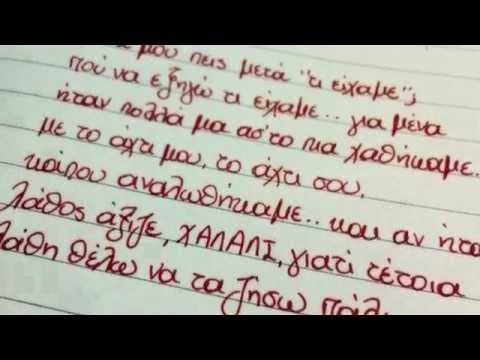 μου πεις μετά "τι είχαμε";
πού να εξηγώ τι είχαμε.. για μένα
ήταν πολλά μα ασ'το πια χαθήκαμε..
με το άχτι μου, το άχτι σου,
κάπου αναλωθήκαμε.. και αν ήτα
λάθος άξιζε, ΧΑΛΑΛΙ, γιατί τέτοια
λάθη θέλω να τα ζήσω πάλι